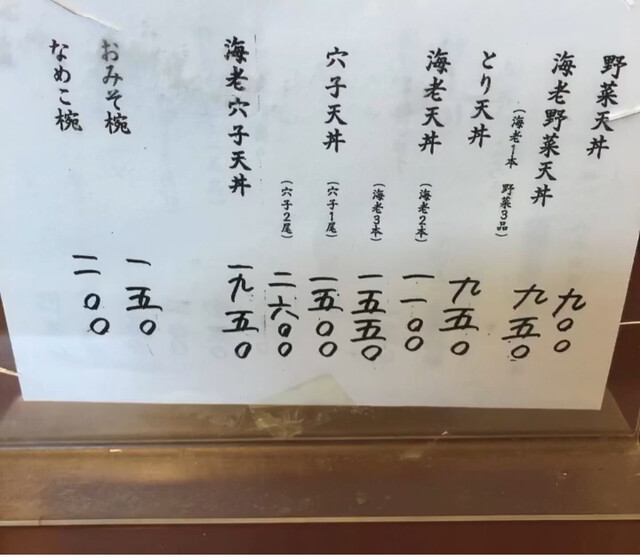 野菜天丼 九〇〇
海老野菜天丼
(海老1本 野菜3品) 九五〇
とり天丼 九五〇
海老天丼 (海老2本) 一一〇〇
(海老3本) 一五五〇
穴子天丼 (穴子1尾) 一五〇〇
(穴子2尾) 二六〇〇
海老穴子天丼 一九五〇
おみそ椀 一五〇
なめこ椀 二〇〇